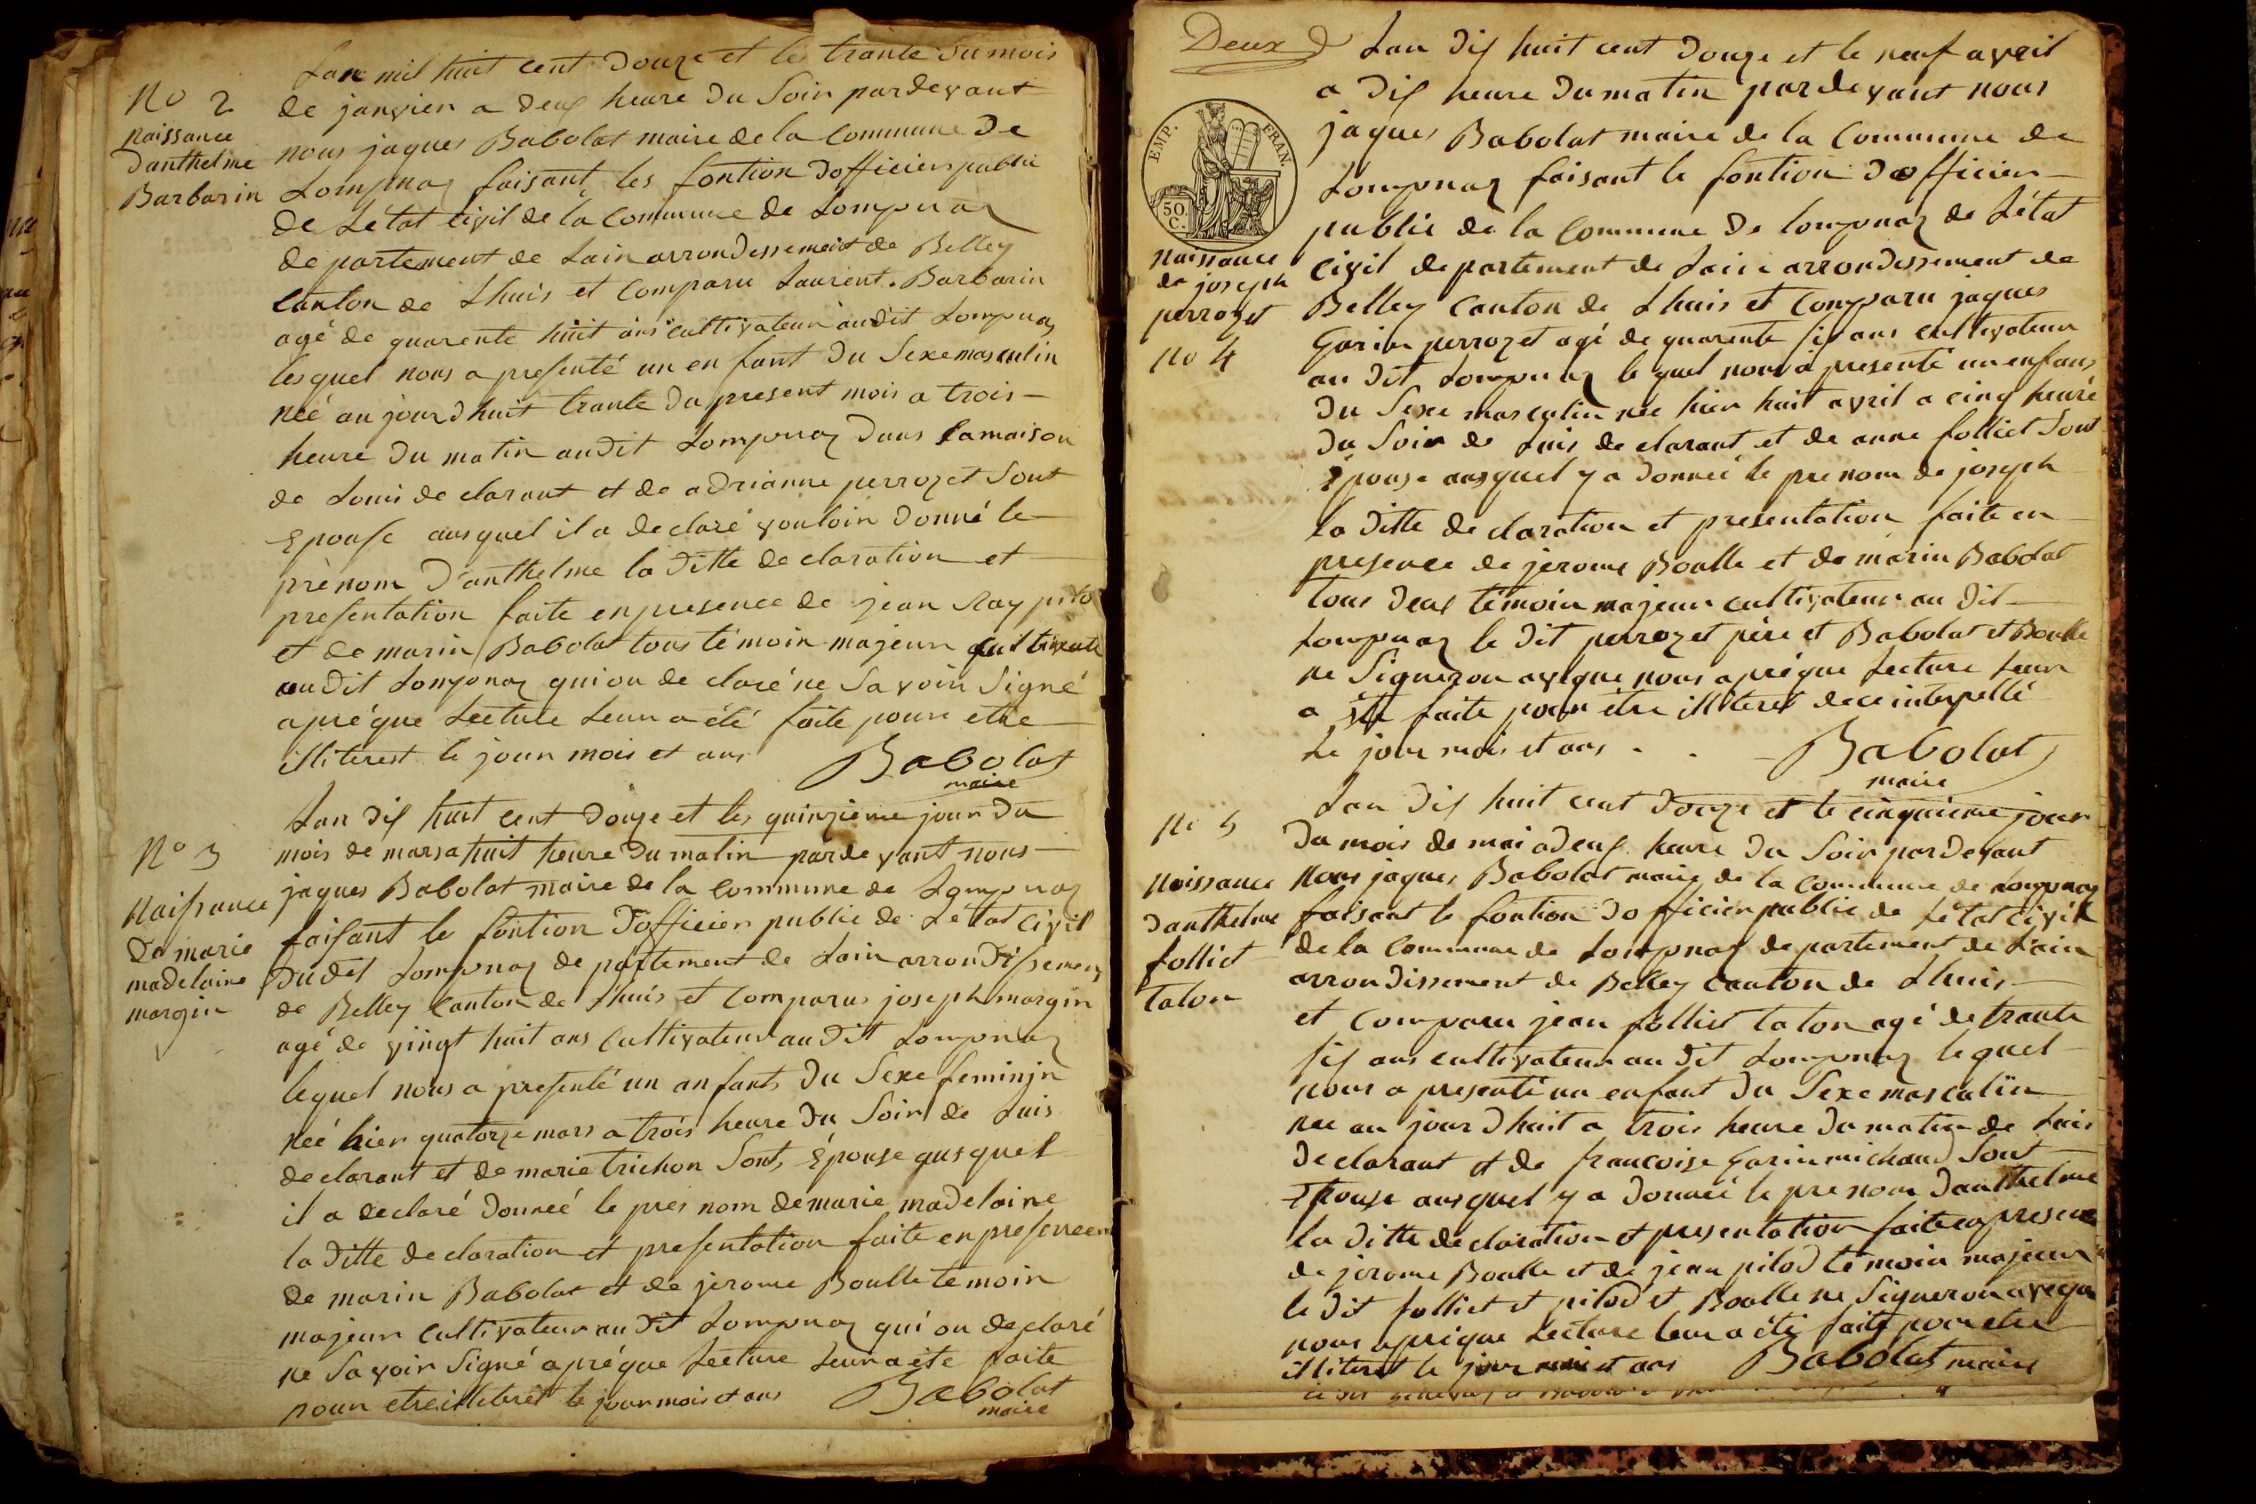 No 2
naissance
danthelme
Barbarin
Lan mil huit cent douze et les trante du mois
de janvier a deux heure du Soir pardevant
nous jaques Babolat maire de la Commune de
Lompnaz faisant les fontion dofficier public
de Létat civil de la Commune de Lompnaz
departement de Lain arrondessement de Belley
Canton de Lhuis et Comparu Laurent Barbarin
agé de quarente huit ans cultivateur audit Lompnaz
lesquel nous a presenté un enfant du Sexe masculin
néé aujourdhuit trante du present mois a trois
heure du matin audit Lompnaz dans la maison
de Louis declarant et de adrianne perrozet Sont
Epouse ausquel il a declaré vouloir donné le
prènom d'anthelme la ditte declaration et
presentation faite en presence de jean Ray
et de marin Babolat tous témoin majeur cultivateur
audit Lompnaz qui on declaré ne Savoir Signé
apréque Lecture Leur a été faite pour etre
illiterest le jour mois et ans
Babolat
maire
No 3
Naissance
de marie
madelaine
margin
Lan dix huit cent douze et les quinzième jour du
mois de mars a huit heure du matin pardevant nous
jaques Babolat maire de la Commune de Lompnaz
faisant le fontion dofficier public de Létat Civil
dudit Lompnaz departement de Lain arrondissement
de Belley Canton de Lhuis et Comparus joseph margin
agé de vingt huit ans Cultivateur audit Lompnaz
lequel nous a presenté un anfants du Sexe feminin
néé hier quatorze mars a trois heure du Soir de Luis
declarant et de marie trichon Sont Épouse ausquel
il a declaré donneé le pres nom de marie madelaine
la ditte declaration et presentation faite en presence
de marin Babolat et de jerome Boulle temoin
majeur Cultivateur audit Lompnaz qui on declaré
ne Savoir Signé apréque Lecture Leur a ete faite
pour etre illiteret le jour mois et ans
Babolat
maire
Deux
EMP. FRAN.
50.
C.
Naissance
de joseph
perrozet
No 4
Lan dix huit cent douze et le neuf avril
a dix heure du matin pardevant nous
jaques Babolat maire de la Commune de
Lompnaz faisant le fontion dofficier
public de la Commune de lompnaz de Létat
Civil departement de Lain arrondissement de
Belley Canton de Lhuis et Comparu jaques
Garin perrozet agé de quarente six ans cultivateur
au dit Lompnaz le quel nous a presenté un enfans
du Sexe masculin née hier huit avril a cinq heure
du Soir de Luis declarant et de anne folliet Sont
Épouse ausquel y a donneé le prenom de joseph
la ditte declaration et presentation faite en
presence de jerome Boulle et de marin Babolat
tous deux témoin majeur cultivateur au dit
Lompnaz le dit perrozet pére et Babolat et Boulle
ne Signeron avéque nous apréque Lecture Leur
a été faite pour étre illiteret de ce interpellé
Le jour mois et ans
Babolat
maire
No 5
Naissance
danthelme
folliet
talon
Lan dix huit cent douze et le cinquième jour
du mois de mai a deux heure du Soir pardevant
Nous jaques Babolat maire de la Commune de Lompnaz
faisant le fontion dofficier public de Létat civil
de la Commune de Lompnaz departement de Lain
arrondissement de Belley Canton de Lhuis
et Comparu jean folliet talon agé de trante
six ans cultivateur au dit Lompnaz lequel
nous a presenté un enfant du Sexe masculin
née au jourdhuit a trois heure du matin de Luis
declarant et de francoise Garin michaud Sont
Epouse ausquel y a donneé le prenom danthelme
la ditte declaration et presentation faite en presence
de jerome Boulle et de jean pilod témoin majeur
le dit folliet et pilod et Boulle ne Signeron avéque
nous apréque Lecture leur a été faite pour etre
illiteret le jour mois et ans Babolat maire